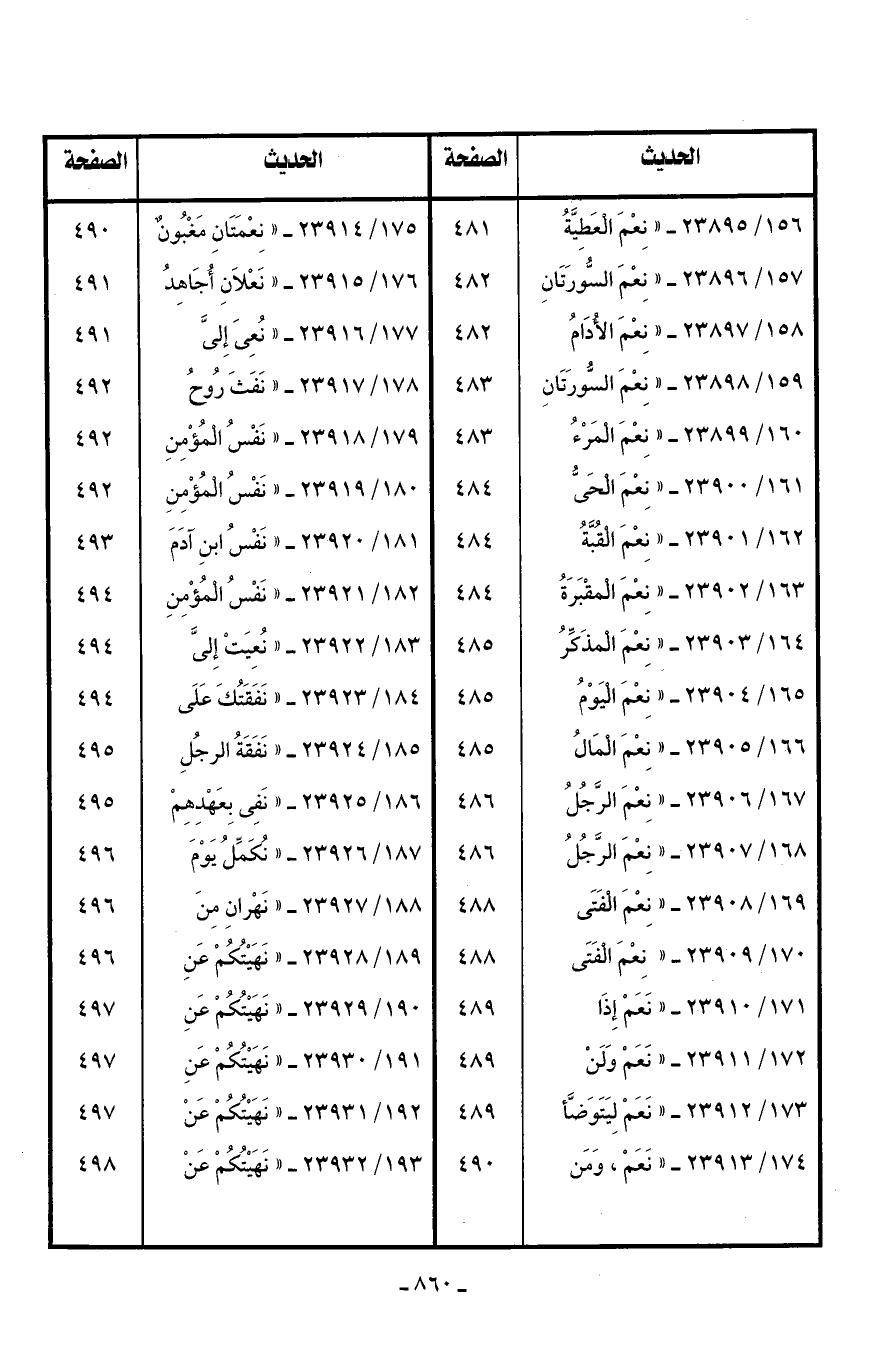 الحديث الصفحة الحديث الصفحة
١٥٦/ ٢٣٨٩٥ ـ « نِعْمَ العَطِيَّةُ ٤٨١ ١٧٥/ ٢٣٩١٤ ـ « نِعْمَتَانِ مَغْبُونٌ ٤٩٠
١٥٧/ ٢٣٨٩٦ ـ « نِعْمَ السُّورَتَانِ ٤٨٢ ١٧٦/ ٢٣٩١٥ ـ « نَعْلاَنِ أُجَاهِدُ ٤٩١
١٥٨/ ٢٣٨٩٧ ـ « نِعْمَ الأُدَامُ ٤٨٢ ١٧٧/ ٢٣٩١٦ ـ « نُعِىَ إِلىَّ ٤٩١
١٥٩/ ٢٣٨٩٨ ـ « نِعْمَ السُّورَتَانِ ٤٨٣ ١٧٨/ ٢٣٩١٧ ـ « نَفَثَ رُوحُ ٤٩٢
١٦٠/ ٢٣٨٩٩ ـ « نِعْمَ الْمَرْءُ ٤٨٣ ١٧٩/ ٢٣٩١٨ ـ « نَفْسُ الْمُؤْمِنِ ٤٩٢
١٦١/ ٢٣٩٠٠ ـ « نِعْمَ الْحَىُّ ٤٨٤ ١٨٠/ ٢٣٩١٩ ـ « نَفْسُ الْمُؤْمِنِ ٤٩٢
١٦٢/ ٢٣٩٠١ ـ « نِعْمَ الْقُبَّةُ ٤٨٤ ١٨١/ ٢٣٩٢٠ ـ « نَفْسُ ابنِ آدَمَ ٤٩٣
١٦٣/ ٢٣٩٠٢ ـ « نِعْمَ الْمقْبَرَةُ ٤٨٤ ١٨٢/ ٢٣٩٢١ ـ « نَفْسُ الْمُؤْمِنِ ٤٩٤
١٦٤/ ٢٣٩٠٣ ـ « نِعْمَ الْمذَكِّرُ ٤٨٥ ١٨٣/ ٢٣٩٢٢ ـ « نُعِيَتْ إِلىَّ ٤٩٤
١٦٥/ ٢٣٩٠٤ ـ « نِعْمَ الْيَوْمُ ٤٨٥ ١٨٤/ ٢٣٩٢٣ ـ « نَفَقَتُكَ عَلَى ٤٩٤
١٦٦/ ٢٣٩٠٥ ـ « نِعْمَ الْمَالُ ٤٨٥ ١٨٥/ ٢٣٩٢٤ ـ « نَفَقَةُ الرجُلِ ٤٩٥
١٦٧/ ٢٣٩٠٦ ـ « نِعْمَ الرَّجُلُ ٤٨٦ ١٨٦/ ٢٣٩٢٥ ـ « نَفِى بِعَهْدِهِمْ ٤٩٥
١٦٨/ ٢٣٩٠٧ ـ « نِعْمَ الرَّجُلُ ٤٨٦ ١٨٧/ ٢٣٩٢٦ ـ « نُكَمِّلُ يَوْمَ ٤٩٦
١٦٩/ ٢٣٩٠٨ ـ « نِعْمَ الْفَتَى ٤٨٨ ١٨٨/ ٢٣٩٢٧ ـ « نَهْرانِ مِنَ ٤٩٦
١٧٠/ ٢٣٩٠٩ ـ « نِعْمَ الْفَتَى ٤٨٨ ١٨٩/ ٢٣٩٢٨ ـ « نَهَيْتُكُمْ عَنِ ٤٩٦
١٧١/ ٢٣٩١٠ ـ « نَعَمْ إِذَا ٤٨٩ ١٩٠/ ٢٣٩٢٩ ـ « نَهَيْتُكُمْ عَنِ ٤٩٧
١٧٢/ ٢٣٩١١ ـ « نَعَمْ وَلَنْ ٤٨٩ ١٩١/ ٢٣٩٣٠ ـ « نَهَيْتُكُمْ عَنِ ٤٩٧
١٧٣/ ٢٣٩١٢ ـ « نَعَمْ لِيَتَوَضَّأ ٤٨٩ ١٩٢/ ٢٣٩٣١ ـ « نَهَيْتُكُمْ عَنْ ٤٩٧
١٧٤/ ٢٣٩١٣ ـ « نَعَمْ ، وَمَن ٤٩٠ ١٩٣/ ٢٣٩٣٢ ـ « نَهَيْتُكُمْ عَنْ ٤٩٨
ـ ٨٦٠ ـ